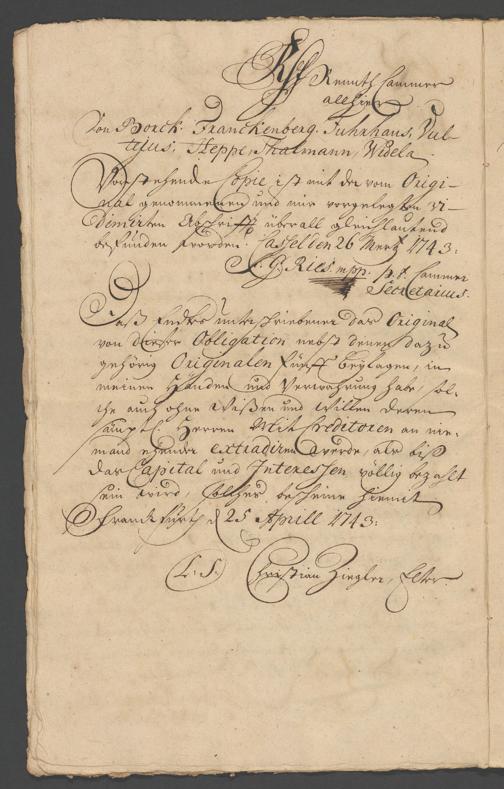 Renth Cammer
allhier
Von Borck. Franckenberg. Fuhrhans, Vul-
tejus, Heppe, Thalmann, Widela
Vorstehende Copie ist mit der vom Origi-
nal genommenen und mir vorgelegten vi-
dimirten Abschrifft überall gleichlautend
befunden worden. Cassel den 26 Mertz 1743.
J. G. Ries. mpp. p. t. Cammer
Secretarius.
Daß Endes unterschriebener das Original
von dieser Obligation nebst denen dazu
gehörig Originalen Fünff Beylagen, in
meinen Händen und Verwahrung habe, sol-
che auch ohne Wißen und Willen deren
sämptl. Herren Mit Creditoren an nie-
mand ehender extradiren werde, als biß
das Capital und Interessen völlig bezahlt
sein wird, solches bescheine hiemit
Franckfurth d 25 Aprill 1743.
(L. S.) Christian Ziegler, Elter